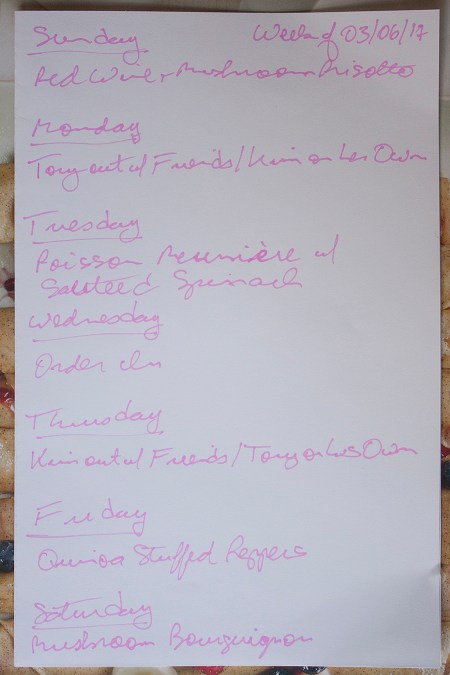 Sunday Week of 03/06/17
Red Wine + Mushroom Risotto
Monday
Tony out w/ Friends/Kim on her Own
Tuesday
Poisson Meunière w/
Sauteed Spinach
Wednesday
Order in
Thursday
Kim out w/ Friends/Tony on his Own
Friday
Quinoa Stuffed Peppers
Saturday
Mushroom Bourguignon